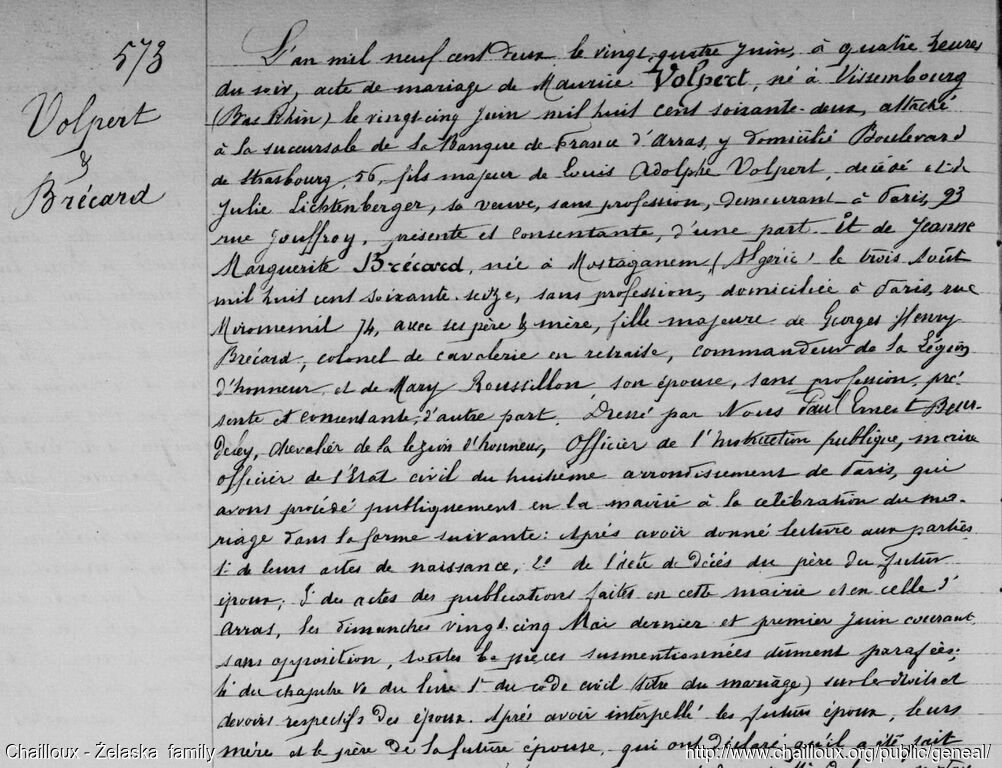 573
Volpert
&
Brécard
L'an mil neuf cent deux le vingt-quatre Juin, à quatre heures
du soir, acte de mariage de Maurice Volpert, né à Vissembourg
(Bas Rhin) le vingt-cinq Juin mil huit cent soixante-deux, attaché
à la succursale de la Banque de France d'Arras, y domicilié Boulevard
de Strasbourg, 56, fils majeur de Louis Adolphe Volpert, décédé et de
Julie Lichtenberger, sa veuve, sans profession, demeurant à Paris, 93
rue Jouffroy, présente et consentante, d'une part. Et de Jeanne
Marguerite Brécard, née à Mostaganem (Algérie) le trois Août
mil huit cent soixante-seize, sans profession, domiciliée à Paris, rue
Miromesnil 74, avec ses père & mère, fille majeure de Georges Henry
Brécard, colonel de cavalerie en retraite, commandeur de la Légion
d'honneur et de Mary Roussillon son épouse, sans profession, pré-
sente et consentante, d'autre part. Dressé par Nous Paul Ernest Beur-
deley, chevalier de la légion d'honneur, Officier de l'Instruction publique, maire
officier de l'Etat civil du huitième arrondissement de Paris, qui
avons procédé publiquement en la mairie à la célébration du ma-
riage dans la forme suivante: Après avoir donné lecture aux parties
1° de leurs actes de naissance, 2° de l'acte de décès du père du futur
époux; 3° des actes des publications faites en cette mairie et en celle d'
Arras, les dimanches vingt-cinq Mai dernier et premier Juin courant
sans opposition, toutes les pièces susmentionnées dûment parafées;
4° du chapitre VI du livre 1er du code civil (titre du mariage) sur les droits et
devoirs respectifs des époux. Après avoir interpellé les futurs époux, leurs
mère et le père de la future épouse, qui ont déclaré qu'il a été fait
Chailloux - Żelaska family
http://www.chailloux.org/public/geneal/